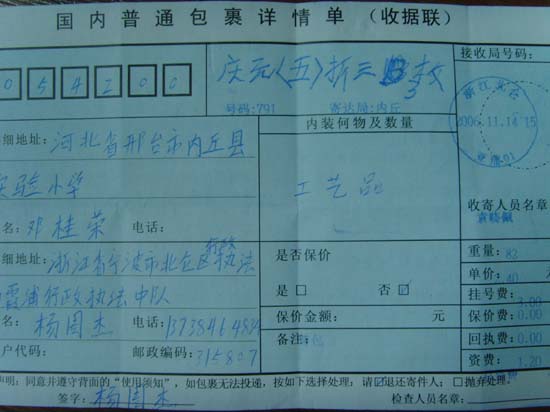 国内普通包裹详情单（收据联）
接收局号码:
054200
号码:791
寄达局:内丘
浙江
2006.11.14 15
细地址:
河北省邢台市内丘县
实验小学
名: 邓桂荣 电话:
内装何物及数量
工艺品
收寄人员名章
细地址:
浙江省宁波市北仑区 执法
霞浦行政执法中队
名: 杨国杰 电话:
户代码: 邮政编码: 315807
是否保价
是□ 否☑
保价金额: 元
备注:
重量: 82
单价: 40
挂号费: 3.00
保价费:0.00
回执费:0.00
资费: 1.20
声明:同意并遵守背面的“使用须知”,如包裹无法投递,按如下选择处理:请☑退还寄件人;□抛弃处理。
签字: 杨国杰
检查人员名章: